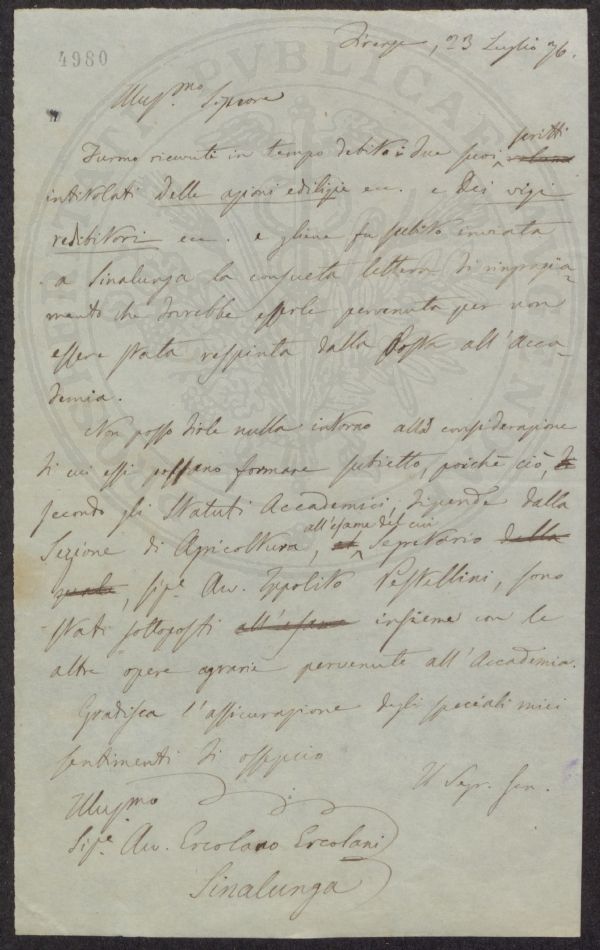 4980
Firenze, 23 Luglio 76.
Illus.mo Signore
Furono ricevuti in tempo debito i due suoi scritti
intitolati Delle azioni edilizie ecc. e Dei vizi
redibitori ecc. e gliene fu subito inviata
a Sinalunga la consueta lettera di ringrazia-
mento che dovrebbe esserle pervenuta per non
essere stata respinta dalla Posta all'Acca-
demia.
Non posso dirle nulla intorno alla considerazione
di cui essi possano formare subietto, poichè ciò,
secondo gli Statuti Accademici, dipende dalla
Sezione di Agricoltura, all'esame del cui Segretario della
quale, sig.e Av. Ippolito Pestellini, sono
stati sottoposti all'esame insieme con le
altre opere agrarie pervenute all'Accademia.
Gradisca l'assicurazione degli speciali miei
sentimenti di ossequio
Il Segr. Gen.
Illus.mo
Sig.e Av. Ercolano Ercolani
Sinalunga